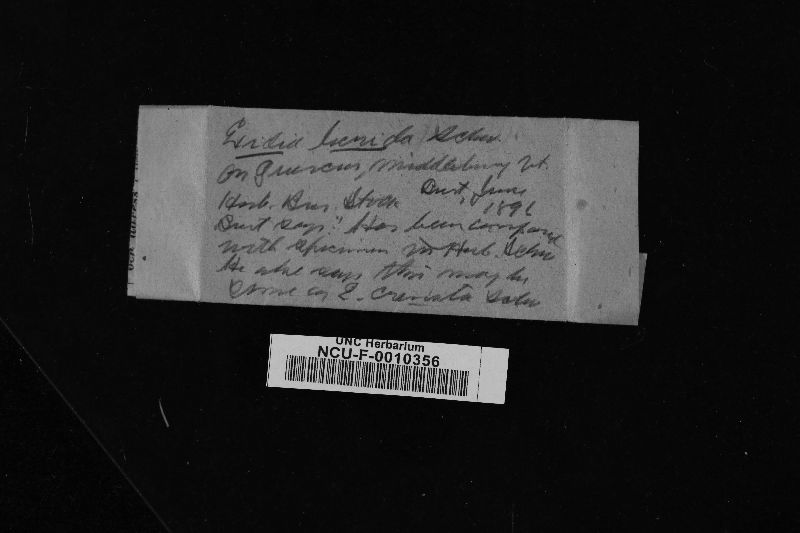 Exidia Schw.
On Quercus, Middlebury Vt.
Burt, June
Herb. Bres. Stock 1896
Burt says "Has been compared
with specimen in Herb. Schw
He also says this may be
same as E. crenata Schw
UNC Herbarium
NCU-F-0010356